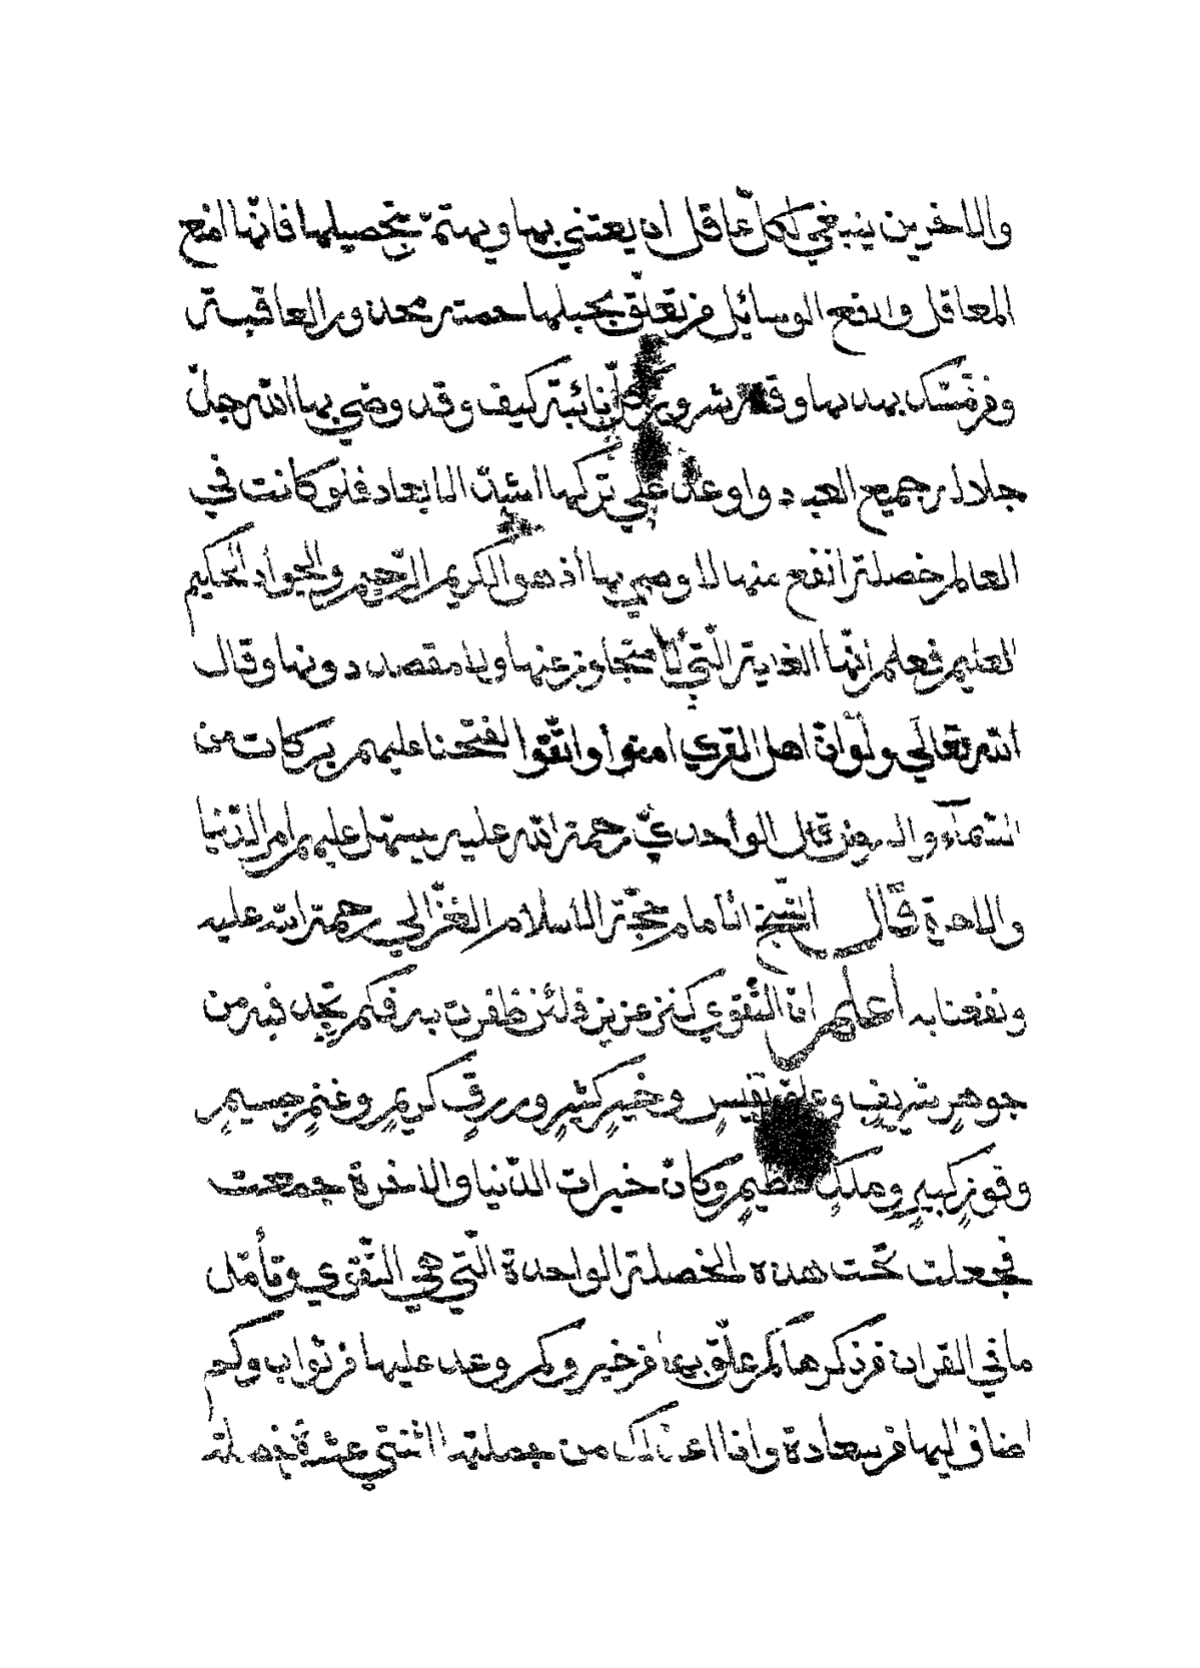 والاخرين ينبغي لكل عاقل ان يعتني بها ويهتمّ بتحصيلها فانّها امنع
المعاقل وانفع الوسائل فمن تعلّق بحبلها حمته محذور العاقبة
ومن تمسّك بهديها وقته شرور كلّ نائبة كيف وقد وصّي بها الله جلّ
جلاله جميع العبيد واوعد علي تركها اشدّ الابعاد فلو كانت في
العالم خصلة أنفع منها لاوصي بها أذ هو الكريم الرّحيم والجواد الحكيم
العليم فعلم انّها الغاية الّتي لا متجاوز عنها ولا مقصد دونها وقال
الله تعالي ولو انّ اهل القري امنوا واتّقوا لفتحنا عليهم بركات من
السّماء والارض قال الواحديّ رحمة الله عليه يسهل عليهم امر الدّنيا
والاخرة قال الشّيخ الامام حجّة الاسلام الغزّالي رحمة الله عليه
ونفعنا به أعلم انّ التّقوي كنز عزيز فلئن ظفرت به فكم تجد فيه من
جوهرٍ شريفٍ وعلقٍ نفيسٍ وخيرٍ كثيرٍ ورزقٍ كريمٍ وغنمٍ جسيمٍ
وفوزٍ كبيرٍ وملكٍ عظيمٍ وكانّ خيرات الدّنيا والاخرة جمعت
فجعلت تحت هذه الخصلة الواحدة الّتي هي التّقوي وتأمّل
ما في القران من ذكرها كم علّق بها من خير وكم وعد عليها من ثواب وكم
اضاف اليها من سعادة وانا اعدّ لك من جملته اثنتي عشرة خصلة